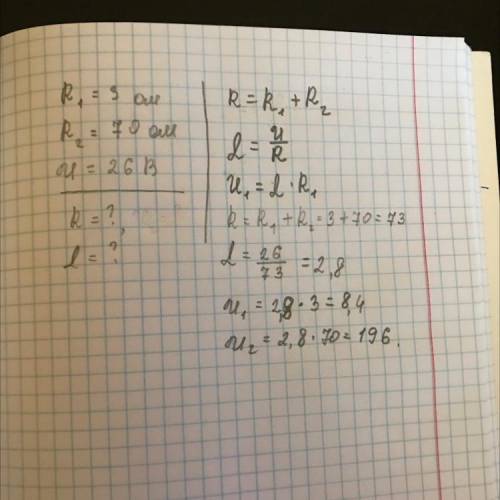 R₁ = 3 ом
R₂ = 70 ом
U = 26 В
R = ?,
I = ?
R = R₁ + R₂
I = U/R
U₁ = I · R₁
R = R₁ + R₂ = 3 + 70 = 73
I = 26/73 = 2,8
U₁ = 2,8 · 3 = 8,4
U₂ = 2,8 · 70 = 196.